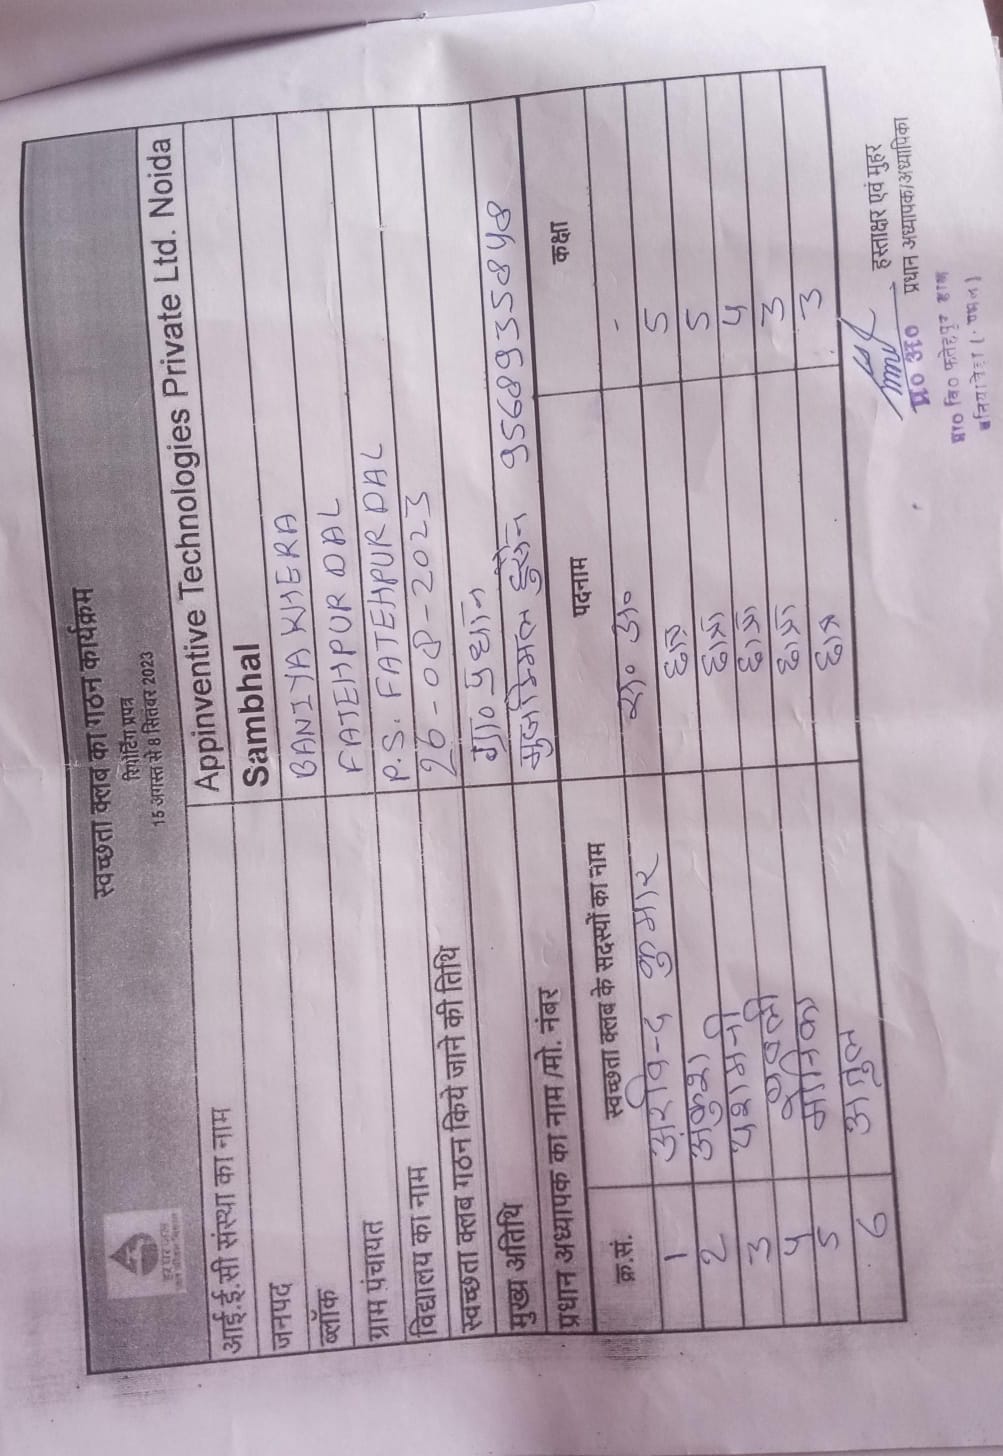 स्वच्छता क्लब का गठन कार्यक्रम
रिपोर्टिंग प्रपत्र
15 अगस्त से 8 सितंबर 2023
हर घर जल
जल जीवन मिशन
आई.ई.सी संस्था का नाम Appinventive Technologies Private Ltd. Noida
जनपद Sambhal
ब्लॉक BANIYA KHERA
ग्राम पंचायत FATEHPUR DAL
विद्यालय का नाम P.S. FATEHPUR DAL
स्वच्छता क्लब गठन किये जाने की तिथि 26-08-2023
मुख्य अतिथि ग्रा० प्रधान
प्रधान अध्यापक का नाम /मो. नंबर मुजम्मिल हुसैन 9568935848
क्र.सं. स्वच्छता क्लब के सदस्यों का नाम पदनाम कक्षा
1 अरविन्द कुमार स० अ० -
2 अंकुश छात्र 5
3 यशमनी छात्रा 5
4 छात्रा 4
5 छात्रा 3
6 अतुल छात्र 3
हस्ताक्षर एवं मुहर
प्रधान अध्यापक/अध्यापिका
प्र० अ०
प्रा० वि० फतेहपुर